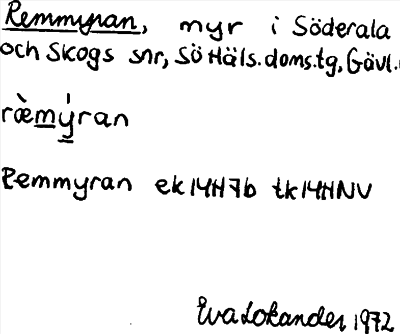 Remmyran, myr i Söderala
och Skogs snr, Sö Häls.doms.tg, Gävl.
ræ̀mýran
Remmyran ek 14H7b tk 14HNV
Eva Lokander 1972